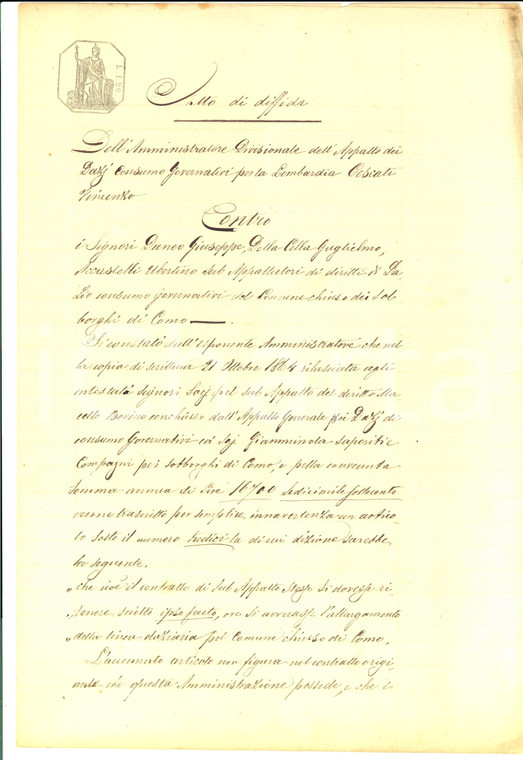 Atto di diffida
Dell'Amministratore Divisionale dell'Appalto dei
Dazj Consumo Governativi per la Lombardia Cesati
Vincenzo
Contro
i Signori Daneo Giuseppe, Della Cella Guglielmo,
Ubertino Sub Appaltatori di diritti di Da
zio consumo governativi del Comune chiuso dei Sob
borghi di Como —.
Si constatò dall'esponente Amministratore che nel
la copia di scrittura 21 Ottobre 1864 rilasciata agli
intestati Signori Socj pel sub Appalto del diritto Ma
cello Bovino conchiuso dall'Appalto Generale pei Dazj di
consumo Governativi coi Soj Gianminola Saporiti e
Compagni pei sobborghi di Como, e pella convenuta
somma annua di Lire 16700 sedicimilasettecento
venne trascritto per semplice innavvertenza un artico
lo sotto il numero tredici la di cui dizione sarebbe
la seguente.
„ che cioè il contratto di Sub Appalto stesso si dovesse ri
„ tenere sciolto ipso facto, ove si avverasse l'allargamento
„ della linea daziaria pel Comune chiuso di Como.
L'accennato articolo non figura nel contratto origi
nale che questa Amministrazione possede, e che è
L. 1.50